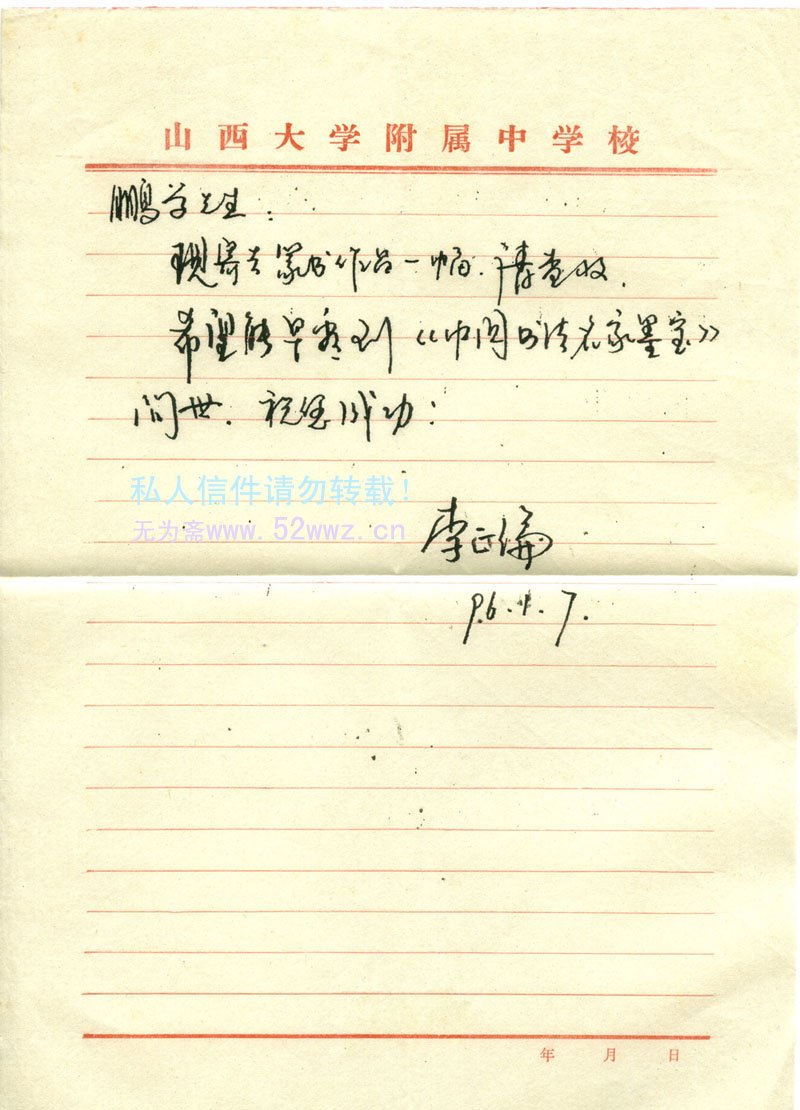 山西大学附属中学校
鹏学先生：
现寄去篆书作品一幅，请查收。
希望能早看到《巾国书法名家墨宝》
问世。祝您成功！
私人信件请勿转载！
无为斋www.52wwz.cn
李正
96.4.7.
年 月 日